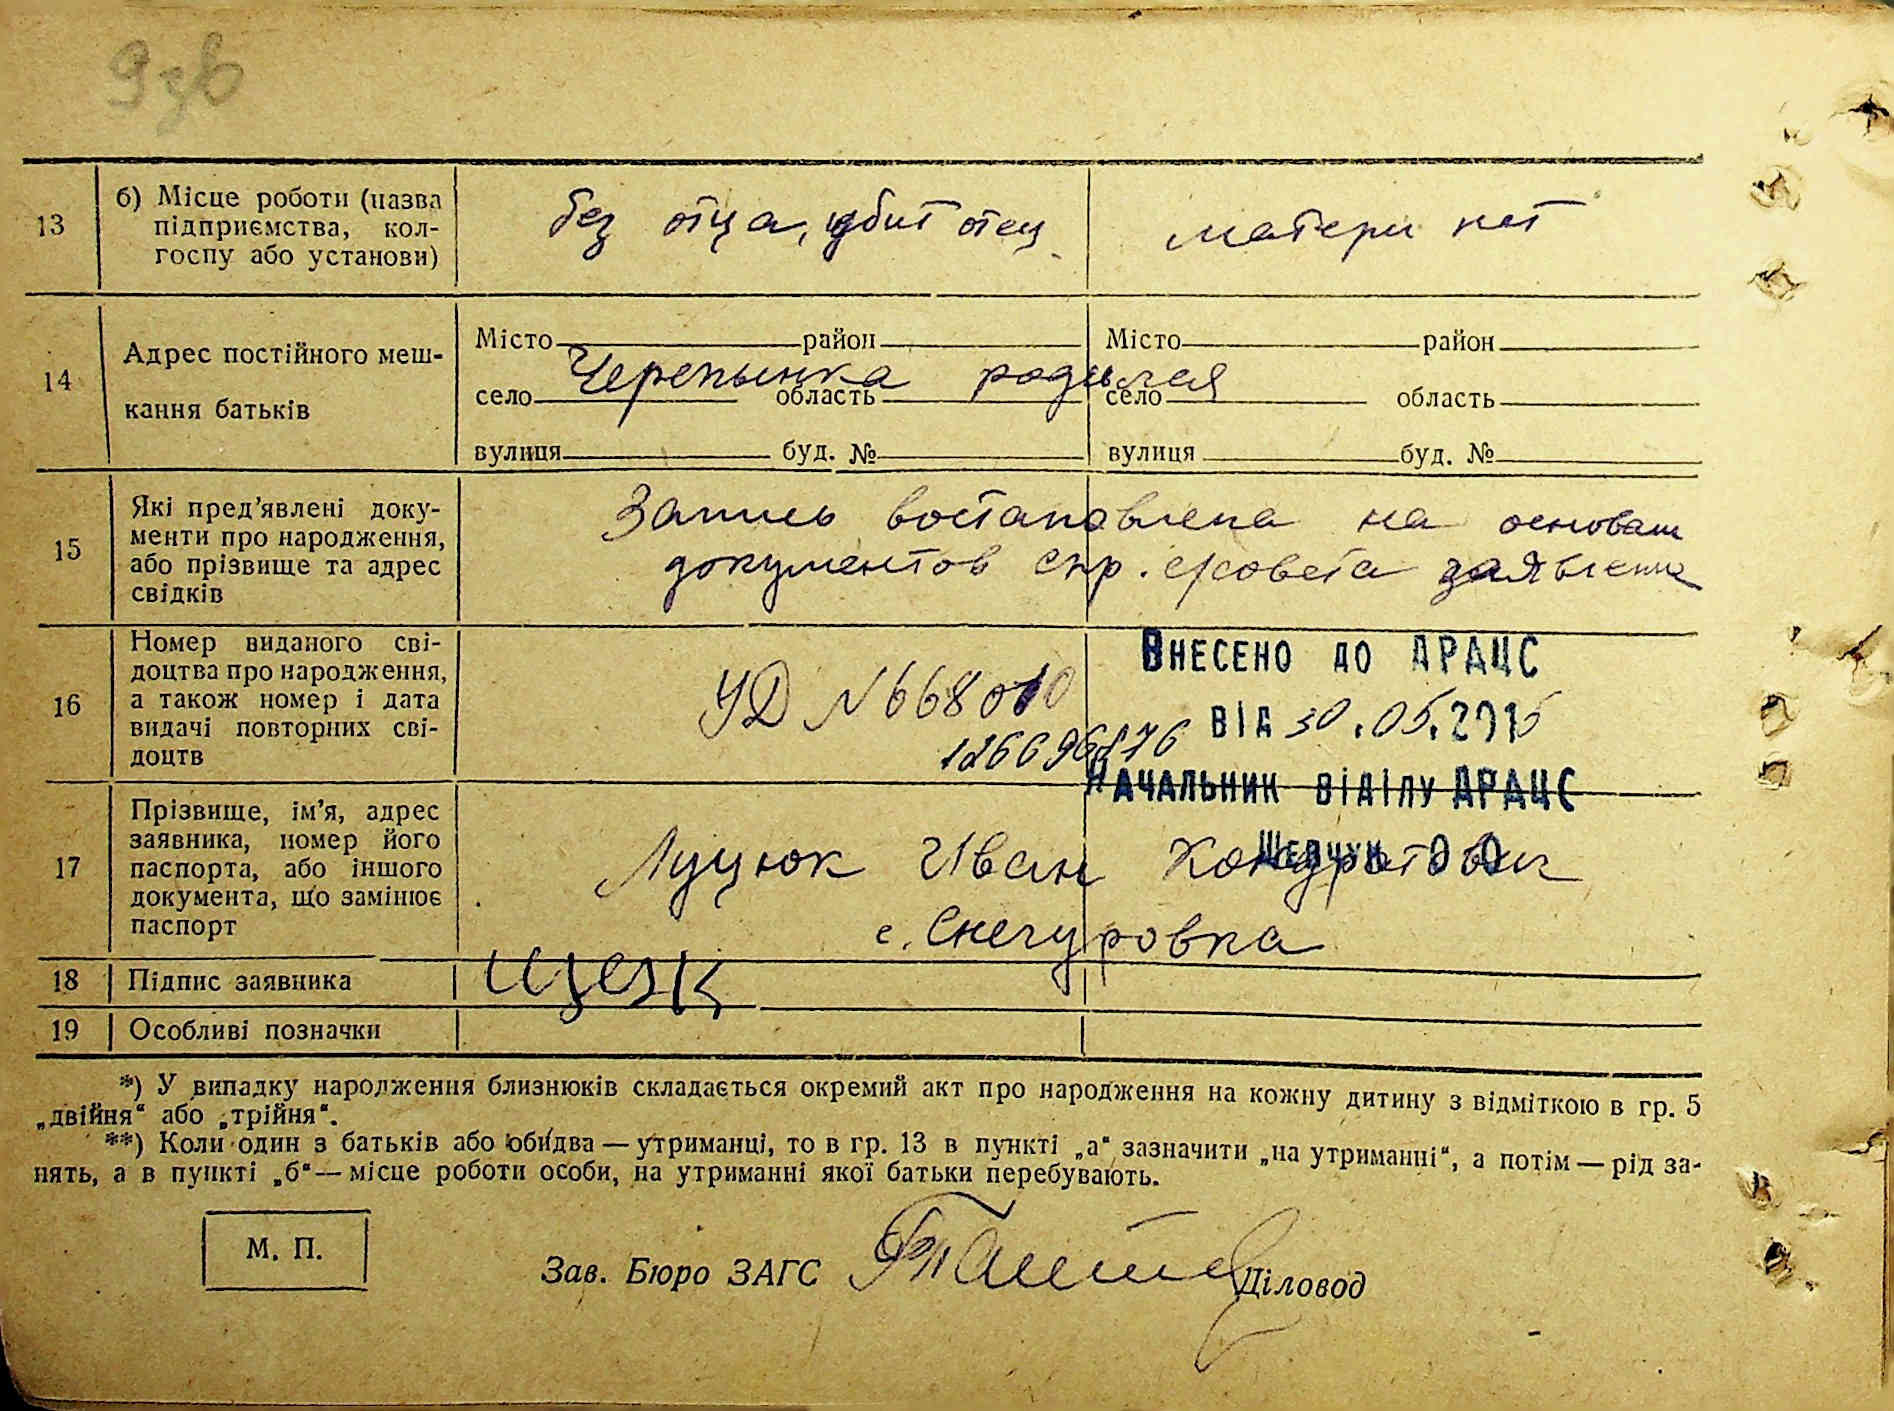 9зв
13
б) Місце роботи (назва
підприємства, кол-
госпу або установи)
без отца, убит отец
матери нет
14
Адрес постійного меш-
кання батьків
Місто район Місто район
Черепынка родился
село область село область
вулиця буд. № вулиця буд. №
15
Які пред’явлені доку-
менти про народження,
або прізвище та адрес
свідків
Запись востановлена на основан
документов спр. с/совета заявления
16
Номер виданого сві-
доцтва про народження,
а також номер і дата
видачі повторних сві-
доцтв
УД N 668010
Внесено до ДРАЦС
від 30.05.2015
Начальник відділу ДРАЦС
17
Прізвище, ім’я, адрес
заявника, номер його
паспорта, або іншого
документа, що замінює
паспорт
Луцюк Иван Кондратович
с. Снегуровка
18
Підпис заявника
19
Особливі позначки
*) У випадку народження близнюків складається окремий акт про народження на кожну дитину з відміткою в гр. 5
„двійня“ або „трійня“.
**) Коли один з батьків або обидва — утриманці, то в гр. 13 в пункті „а“ зазначити „на утриманні“, а потім — рід за-
нять, а в пункті „б“ — місце роботи особи, на утриманні якої батьки перебувають.
М. П.
Зав. Бюро ЗАГС Діловод